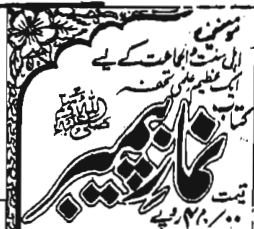 اہل سنت والجماعت کے لیے
ایک عظیم علمی تحفہ
کتاب
نماز پیمبر
صلی اللہ علیہ وسلم
قیمت
روپے